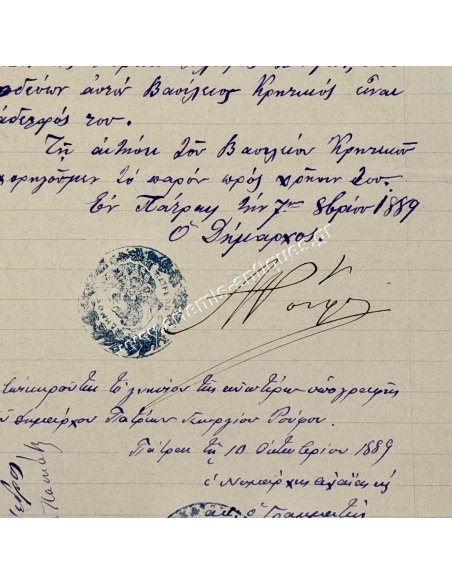 οδεύων αυτόν Βασίλειος Κρητικός είναι
αδελφός του.
Τη αιτήσει του Βασιλείου Κρητικού
χορηγούμεν το παρόν προς χρήσιν του.
Εν Πάτραις την 7ην 8βρίου 1889
Ο Δήμαρχος
Γ Ρούφος
Επικυρούται το γνήσιον της ανωτέρω υπογραφής
του δημάρχου Πατρέων Γεωργίου Ρούφου.
Πάτραι τη 10 Οκτωβρίου 1889
ο Νομάρχης
ο Γραμματεύς